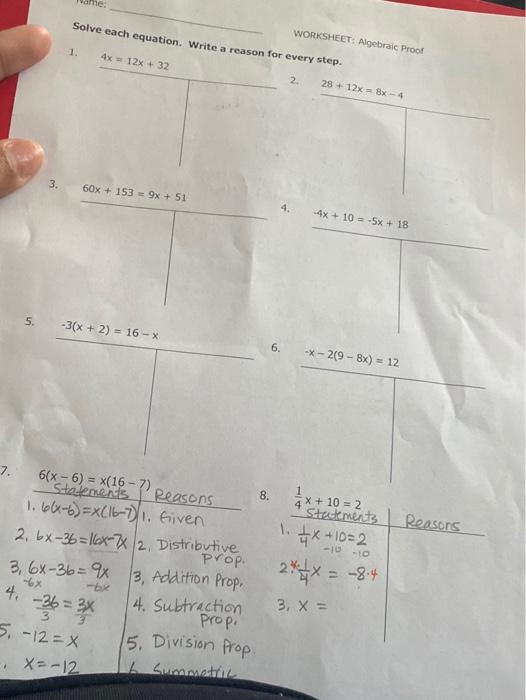 Name:
WORKSHEET: Algebraic Proof
Solve each equation. Write a reason for every step.
1. 4x = 12x + 32
2. 28 + 12x = 8x – 4
3. 60x + 153 = 9x + 51
4. -4x + 10 = -5x + 18
5. -3(x + 2) = 16 – x
6. -x – 2(9 – 8x) = 12
7. 6(x – 6) = x(16 – 7)
Statements Reasons
1. 6(x-6)=x(16-7) 1. Given
2. 6x-36=16x-7x 2. Distributive
prop.
3. 6x-36=9x 3. Addition Prop.
-6x -6x
4. -36 = 3x 4. Subtraction
3 3 prop.
5. -12 = x 5. Division Prop.
. x=-12 6. Symmetric
8. 1/4 x + 10 = 2
Statements Reasons
1. 1/4 x +10=2
-10 -10
2. 4· 1/4 x = -8·4
3. x =